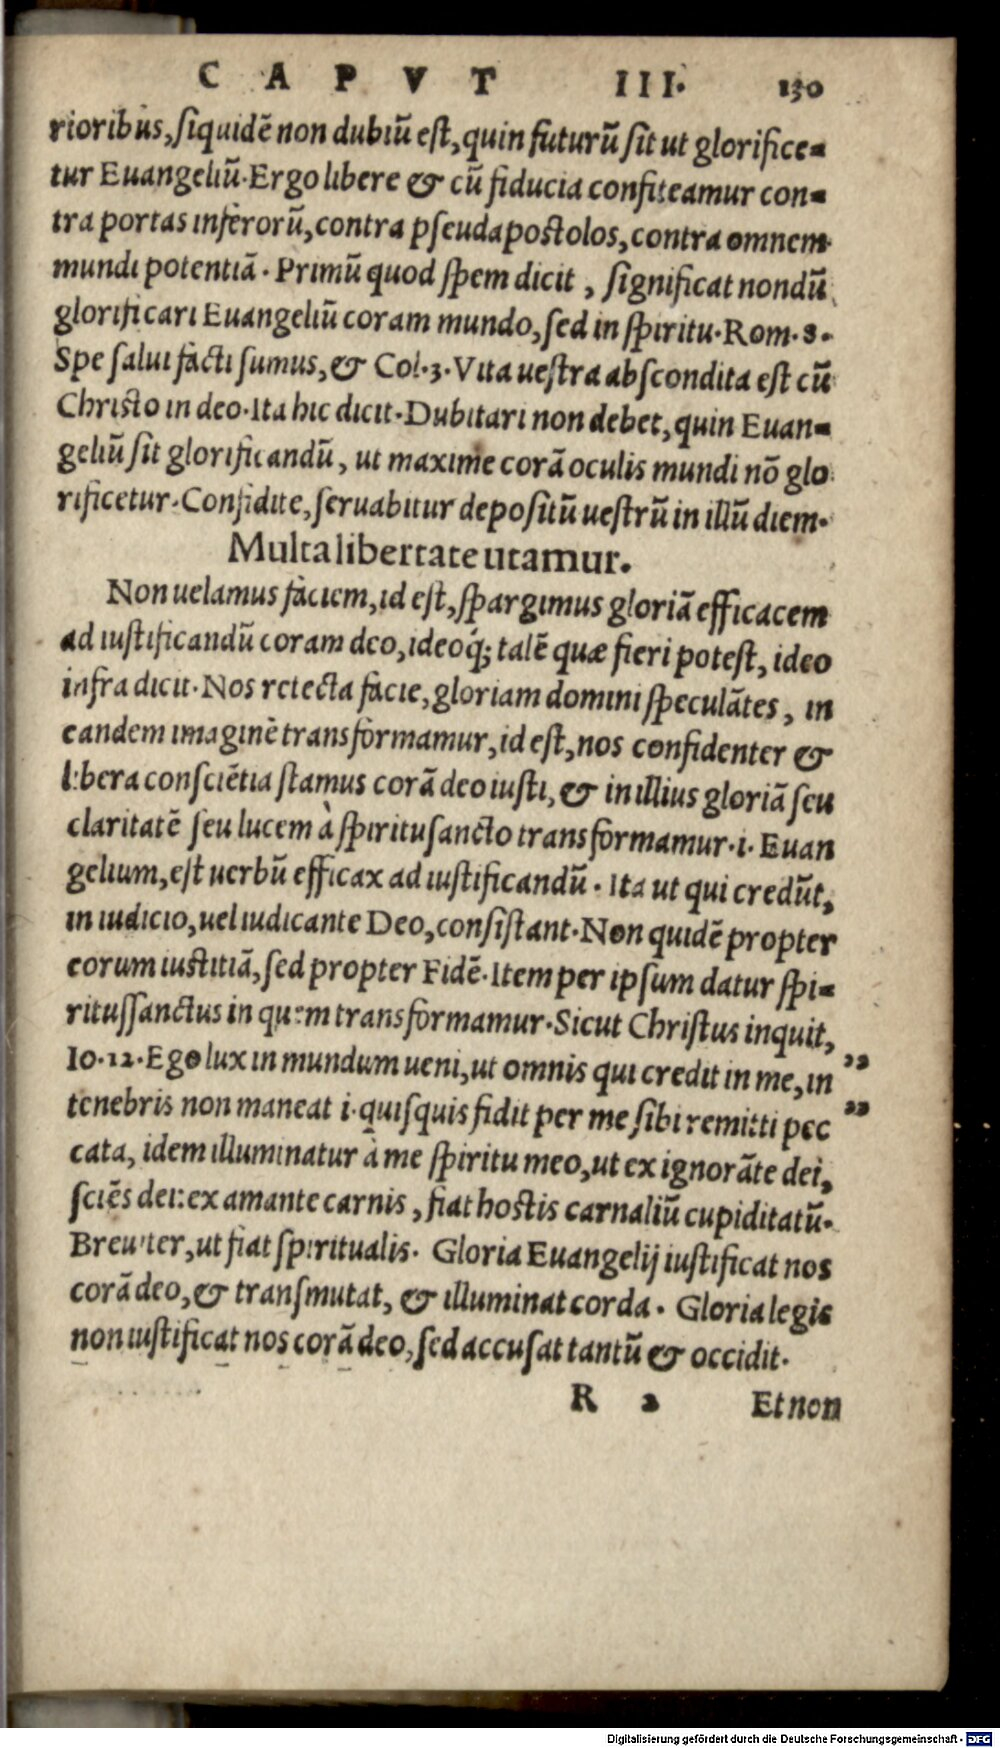 CAPVT III. 130
rioribus, siquidē non dubiū est, quin futurū sit ut glorifice-
tur Euangeliū. Ergo libere & cū fiducia confiteamur con-
tra portas inferorū, contra pseudapostolos, contra omnem
mundi potentiā. Primū quod spem dicit, significat nondū
glorificari Euangeliū coram mundo, sed in spiritu. Rom. 8.
Spe salui facti sumus, & Col. 3. Vita uestra abscondita est cū
Christo in deo. Ita hic dicit. Dubitari non debet, quin Euan-
geliū sit glorificandū, ut maxime corā oculis mundi nō glo
rificetur. Confidite, seruabitur depositū uestrū in illū diem.
Multa libertate utamur.
Non uelamus faciem, id est, spargimus gloriā efficacem
ad iustificandū coram deo, ideoq́; talē quæ fieri potest, ideo
infra dicit. Nos retecta facie, gloriam domini speculātes, in
eandem imaginē transformamur, id est, nos confidenter &
libera consciētia stamus corā deo iusti, & in illius gloriā seu
claritatē seu lucem à spiritusancto transformamur. i. Euan
gelium, est uerbū efficax ad iustificandū. Ita ut qui credūt,
in iudicio, uel iudicante Deo, consistant. Non quidē propter
eorum iustitiā, sed propter Fidē. Item per ipsum datur spi-
ritussanctus in quem transformamur. Sicut Christus inquit,
Io. 12. Ego lux in mundum ueni, ut omnis qui credit in me, in „
tenebris non maneat i. quisquis fidit per me sibi remitti pec „
cata, idem illuminatur à me spiritu meo, ut ex ignorāte dei,
sciēs dei: ex amante carnis, fiat hostis carnaliū cupiditatū.
Breuiter, ut fiat spiritualis. Gloria Euangelij iustificat nos
corā deo, & transmutat, & illuminat corda. Gloria legis
non iustificat nos corā deo, sed accusat tantū & occidit.
R 2 Et non
Digitalisierung gefördert durch die Deutsche Forschungsgemeinschaft - DFG